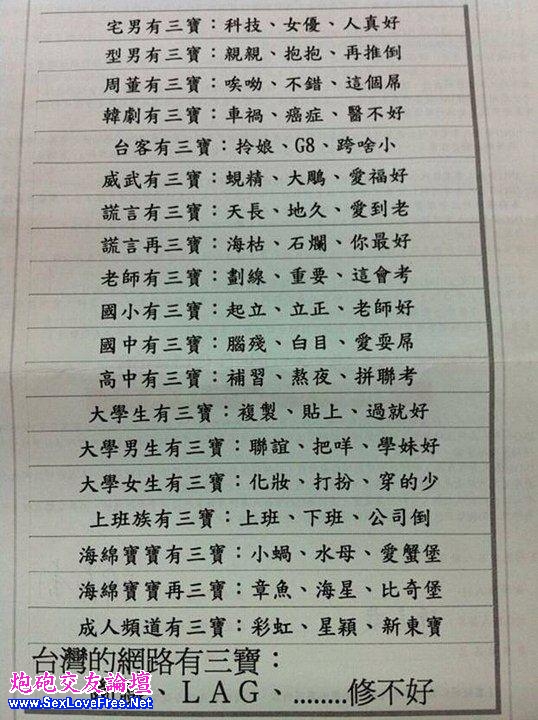 宅男有三寶：科技、女優、人真好
型男有三寶：親親、抱抱、再推倒
周董有三寶：唉呦、不錯、這個屌
韓劇有三寶：車禍、癌症、醫不好
台客有三寶：拎娘、G8、跨啥小
威武有三寶：蜆精、大鵰、愛福好
謊言有三寶：天長、地久、愛到老
謊言再三寶：海枯、石爛、你最好
老師有三寶：劃線、重要、這會考
國小有三寶：起立、立正、老師好
國中有三寶：腦殘、白目、愛耍屌
高中有三寶：補習、熬夜、拼聯考
大學生有三寶：複製、貼上、過就好
大學男生有三寶：聯誼、把咩、學妹好
大學女生有三寶：化妝、打扮、穿的少
上班族有三寶：上班、下班、公司倒
海綿寶寶有三寶：小蝸、水母、愛蟹堡
海綿寶寶再三寶：章魚、海星、比奇堡
成人頻道有三寶：彩虹、星穎、新東寶
台灣的網路有三寶：
、LAG、........修不好
炮砲交友論壇
www.SexLoveFree.Net